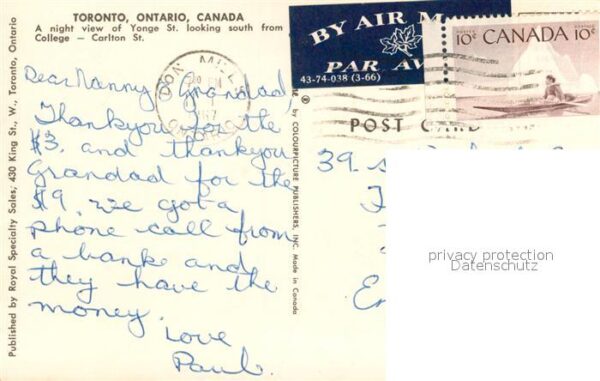 TORONTO, ONTARIO, CANADA
A night view of Yonge St. looking south from
College — Carlton St.
Dear Nanny Grandad,
Thankyou for the
$3. and thankyou
Grandad for the
$9. we got a
phone call from
a banke and
they have the
money.
Love
Paul.
Published by Royal Specialty Sales, 430 King St., W., Toronto, Ontario
by COLOURPICTURE PUBLISHERS, INC. Made in Canada
DON MILLS
BY AIR M
PAR AV
43-74-038 (3-66)
10¢ CANADA 10¢
POST CARD
39.
privacy protection
Datenschutz